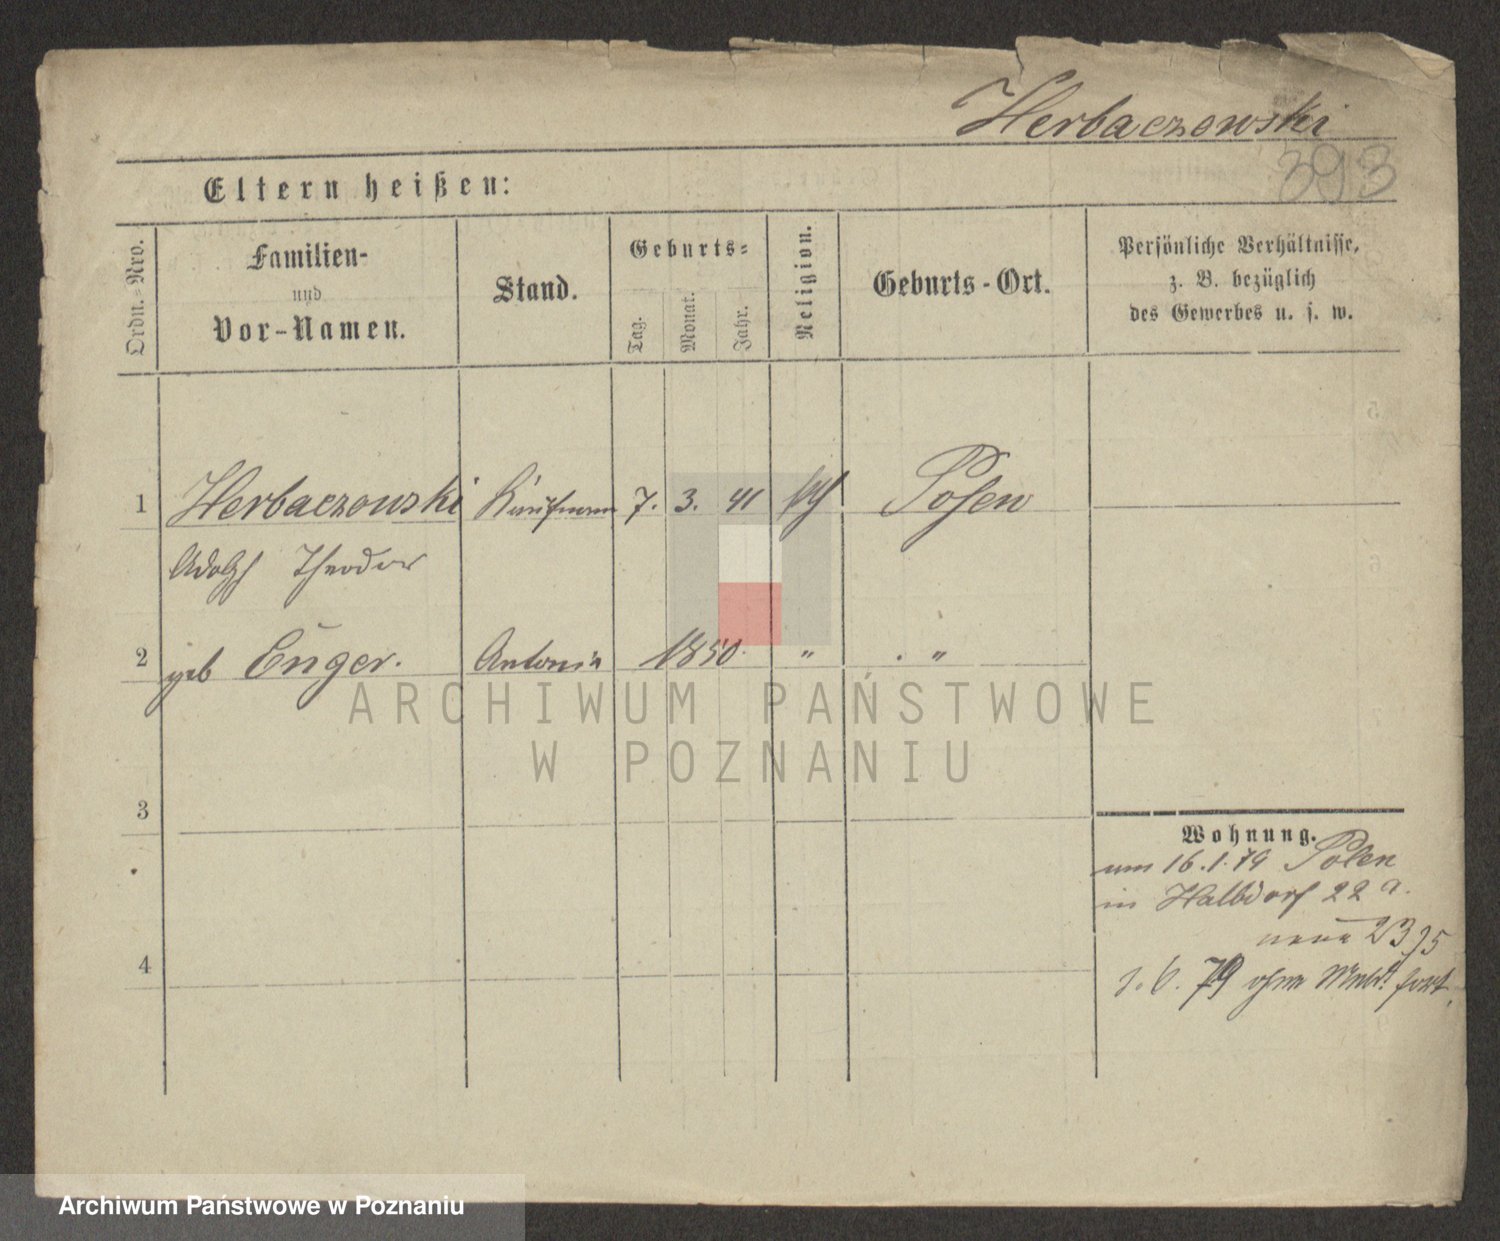 Herbaczowski
393
Eltern heißen:
Ordn.-Nro.
Familien-
und
Vor-Namen.
Stand.
Geburts-
Tag.
Monat.
Jahr.
Religion.
Geburts-Ort.
Persönliche Verhältnisse,
z. B. bezüglich
des Gewerbes u. s. w.
1 Herbaczowski Kaufmann 7. 3. 41 Posen
Adolph Theodor
2 geb Enger. Antonie 1850. " "
ARCHIWUM PAŃSTWOWE
W POZNANIU
3
Wohnung.
um 16.1.79 Posen
in Halbdorf 22 a.
4
79 ohne Meld. fort.
Archiwum Państwowe w Poznaniu